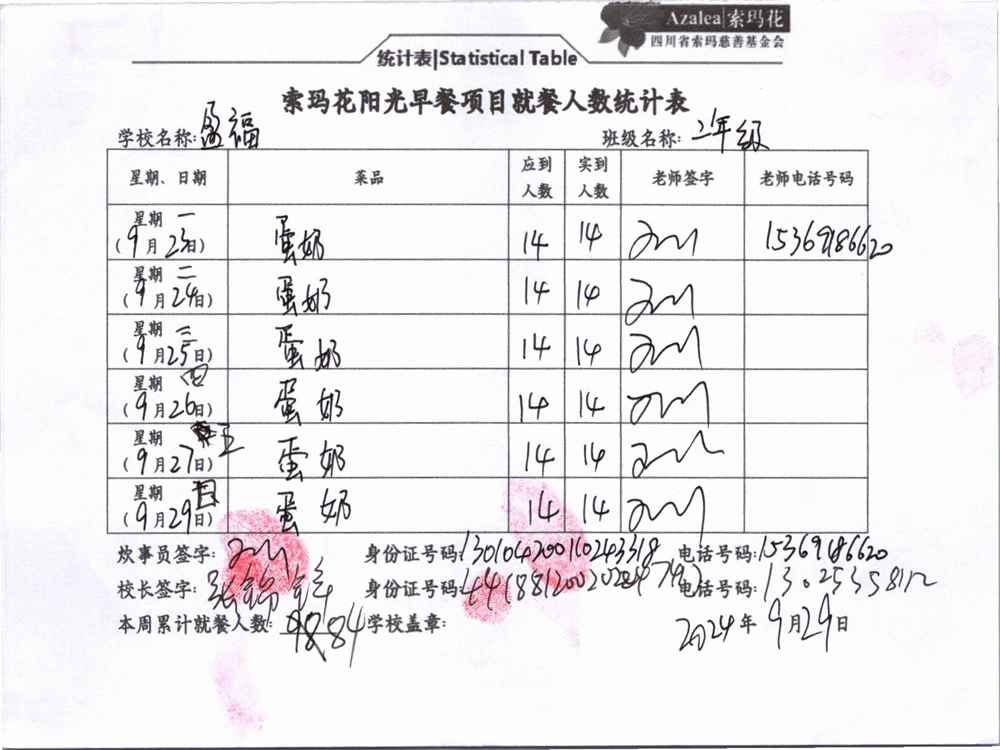 Azalea|索玛花
四川省索玛慈善基金会
统计表|Statistical Table
索玛花阳光早餐项目就餐人数统计表
学校名称:盈福 班级名称:二年级
星期、日期 菜品 应到人数 实到人数 老师签字 老师电话号码
星期 一 (9月23日) 蛋奶 14 14 15369186620
星期 二 (9月24日) 蛋奶 14 14
星期 三 (9月25日) 蛋奶 14 14
星期 四 (9月26日) 蛋奶 14 14
星期 五 (9月27日) 蛋奶 14 14
星期 日 (9月29日) 蛋奶 14 14
炊事员签字: 身份证号码:130104200110243318 电话号码:15369186620
校长签字: 身份证号码: 电话号码:
本周累计就餐人数: 84 学校盖章: 2024年9月29日